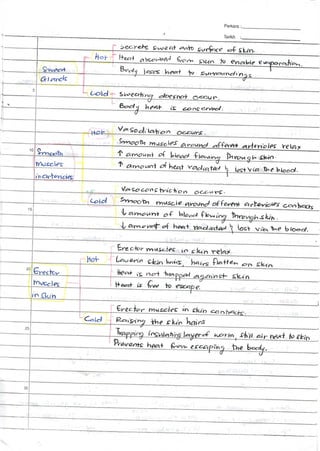 Perkara:
Tarikh:
Secrete sweat onto surface of skin
Hot
Heat absorbed from skin to enable evaporation.
Sweat
Body loses heat to surroundings
Glands
Cold
Sweating doesnot occur.
Body heat is conserved.
Hot
Vasodilation occurs.
Smooth muscles around afferent arterioles relax
Smooth
↑ amount of blood flowing through skin
muscles
↑ amount of heat radiated & lost via the blood.
in arterioles
Vasoconstriction occurs.
Cold
Smooth muscle around afferent arterioles contracts
↓ amount of blood flowing through skin.
↓ amount of heat radiated & lost via the blood.
Erector muscles in skin relax
Hot
Lowering skin hairs, hairs flatten on skin
Erector
is not trapped against skin
muscles
Heat is free to escape
in Skin
Erector muscles in skin contracts.
Cold
Raising the skin hairs
Trapping insulating layer of warm, still air next to skin
Prevents heat from escaping the body.